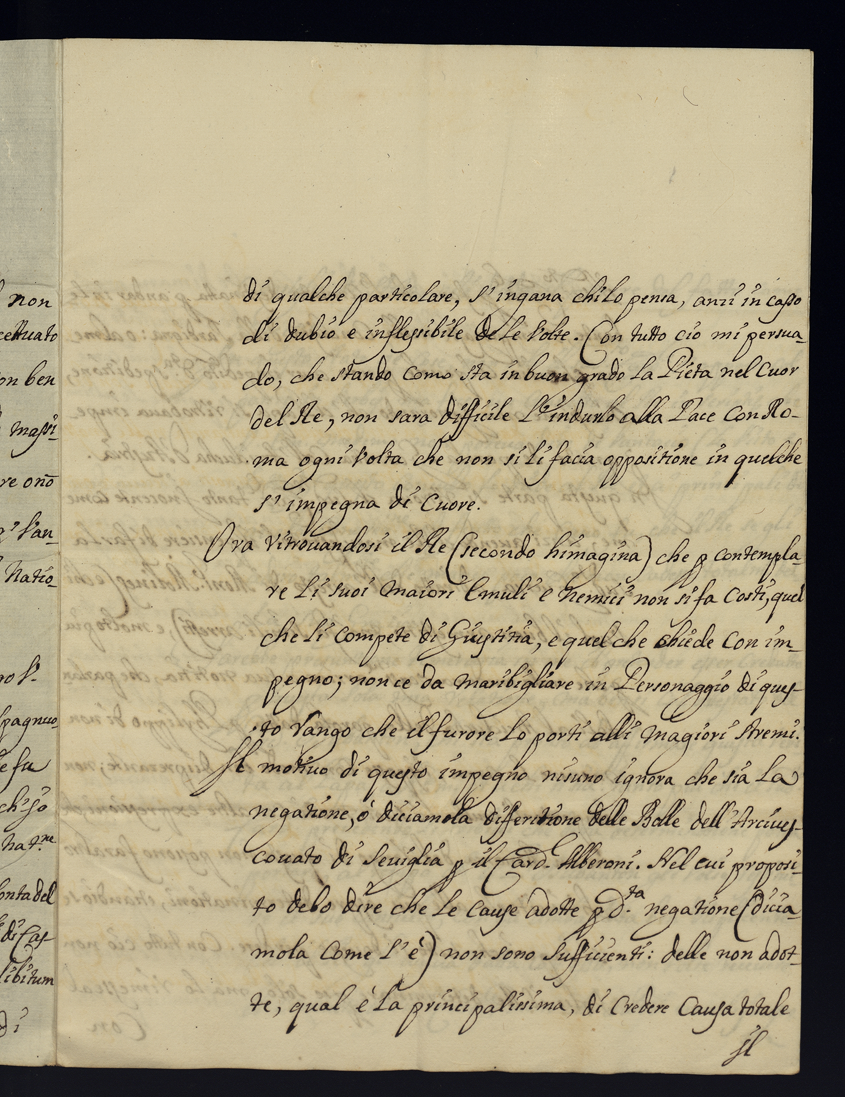 non
cettuato
on ben
Massi-
re onõ
Natio-
Spagnuo
e fu
chiso
Nat.ne
onta del
di Cas
libitum
di qualche particolare, s'ingana chi lo pensa, anzi in casso
di dubio e inflessibile dele volte. Con tutto cio mi persua-
do, che stando come sta in buon grado la Pieta nel Cuor
del Re, non sara difficile l'indurlo alla Pace con Ro-
ma ogni volta che non si li facia oppositione in quelche
s'impegna di Cuore.
Ora ritrovandosi il Re (secondo himagina) che p contempla-
re li suoi Maiori Emuli e Nemici non si fa Costi, quel
che li compete di Giustitia, e quel che chiede con im-
pegno; non ce da maribigliare in Personaggio di ques-
to Rango che il furore lo porti alli Magiori stremi.
Il motivo di questo impegno nisuno ignora che sia la
negatione, ó diciamola differitione delle Bolle dell'Arcives-
covato di Seviglia p il Card.l Alberoni. Nel cui proposi-
to debo dire che le cause adotte p d.ta negatione (dicia-
mola come l'é) non sono sufficienti: delle non adot-
te, qual é la principalissima, di credere Causa totale
il